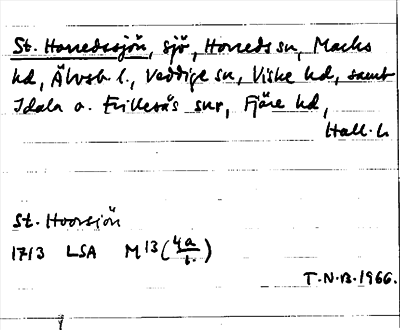 St. Horredssjön, sjö, Horreds sn, Marks
hd, Älvsb l., Veddige sn, Viske hd, samt
Idala o. Frillesås snr, Fjäre hd,
Hall. l.
St. Hoorsjön
1713 LSA M 13 (4a/1.)
T.N.B. 1966.